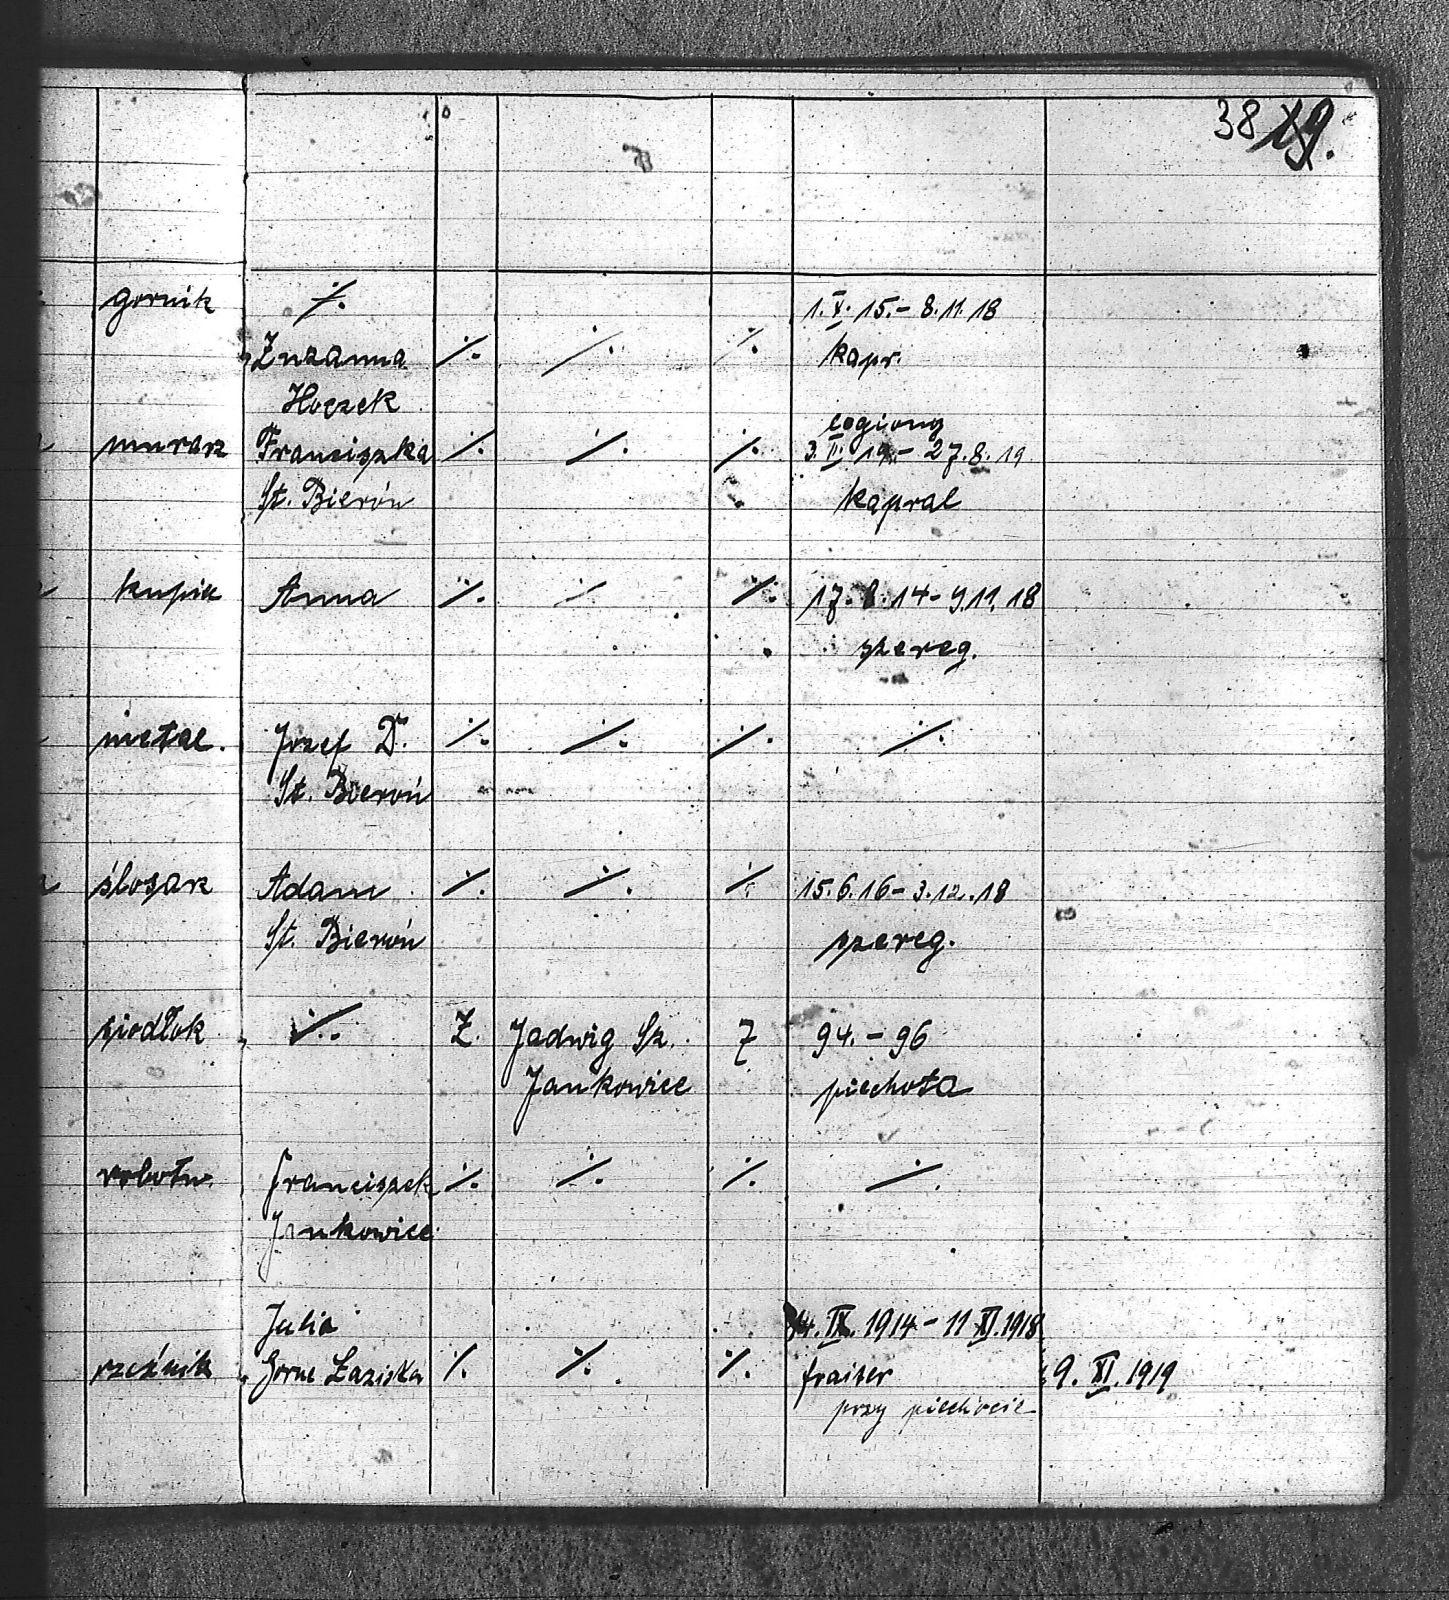 38 19.
gornik ·/. 1.X.15.- 8.11.18
Zuzanna ·/. ·/. ·/. kapr.
Hoczek
legiony
murarz Franciszka ·/. ·/. ·/. 3.II.19.- 27.8.19
St. Bieroń kapral
kupiec Anna ·/. ·/. ·/. 17.8.14- 9.11.18
szereg.
metal. Jozef D. ·/. ·/. ·/. ·/.
St. Bieroń
ślosarz Adam ·/. ·/. ·/. 15.6.16- 3.12.18
St. Bieroń szereg.
siodłok ·/. Z. Jadwig Sz. Z 94.- 96
Jankowice piechota
robotn. Franciszek ·/. ·/. ·/. ·/.
Jankowice
Julia 14.IX.1914- 11 XI.1918
rzeźnik Gorne Łaziska ·/. ·/. ·/. fraiter 9.XI.1919
przy piechocie